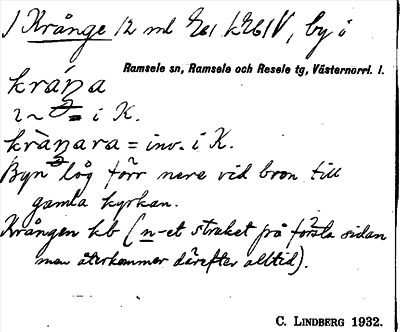 1 Krånge 12 ml
by i
Ramsele sn, Ramsele och Resele tg, Västernorrl. l.
kråŋa
i K.
kråŋara = inv. i K.
Byn låg förr nere vid bron till
gamla kyrkan.
Krången kb (n-et struket på första sidan
men återkommer därefter alltid).
C. LINDBERG 1932.